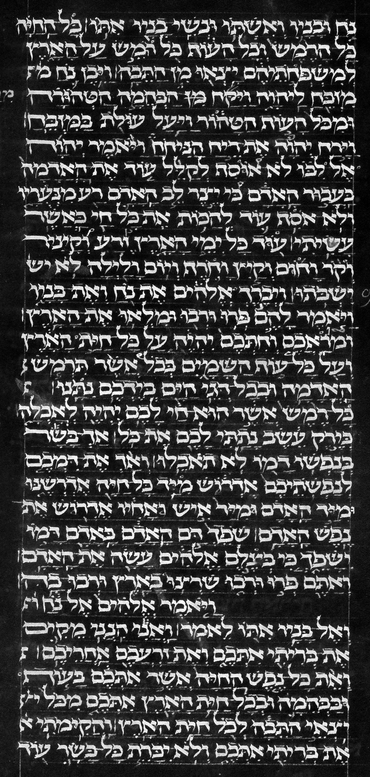 נח ובניו ואשתו ונשי בניו אתו כל החיה
כל הרמש וכל העוף כל רמש על הארץ
למשפחתיהם יצאו מן התבה ויבן נח מ
מזבח ליהוה ויקח הבהמה הטהורה
ומכל העוף הטהור ויעל עולת במזבח
וירח יהוה את ריח הניחח ויאמר יהוה
אל לבו לא אוסף לקלל עוד את האדמה
בעבור האדם כי יצר לב האדם רע מנעריו
ולא אסף עוד להכות את כל חי כאשר
עשיתי עוד כל ימי הארץ זרע וקציר
וקר וחום וקיץ וחרף ויום ולילה לא יש
ישבתו ויברך אלהים את נח ואת בניו
ויאמר להם פרו ורבו ומלאו את הארץ
ומוראכם וחתכם יהיה על כל חית הארץ
ועל כל עוף השמים בכל אשר תרמש
האדמה ובכל דגי הים בידכם נתנו
כל רמש אשר הוא חי לכם יהיה לאכלה
כירק עשב נתתי לכם את כל אך בשר
בנפשו דמו לא תאכלו ואך את דמכם
לנפשתיכם אדרוש מיד כל חיה אדרשנו
ומיד האדם ומיד איש אחיו אדרוש את
נפש האדם שפך דם האדם באדם דמו
ישפך כי בצלם אלהים עשה את האדם
ואתם פרו ורבו שרצו בארץ ורבו בה
ויאמר אלהים אל נח
ואל בניו אתו לאמר ואני הנני מקים
את בריתי אתכם ואת זרעכם אחריכם
ואת כל נפש החיה אשר אתכם בעוף
ובבהמה ובכל חית הארץ אתכם מכל
יצאי התבה לכל חית הארץ והקימתי
את בריתי אתכם ולא יכרת כל בשר עוד